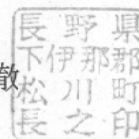 長野県
下伊那郡
松川町
長之印